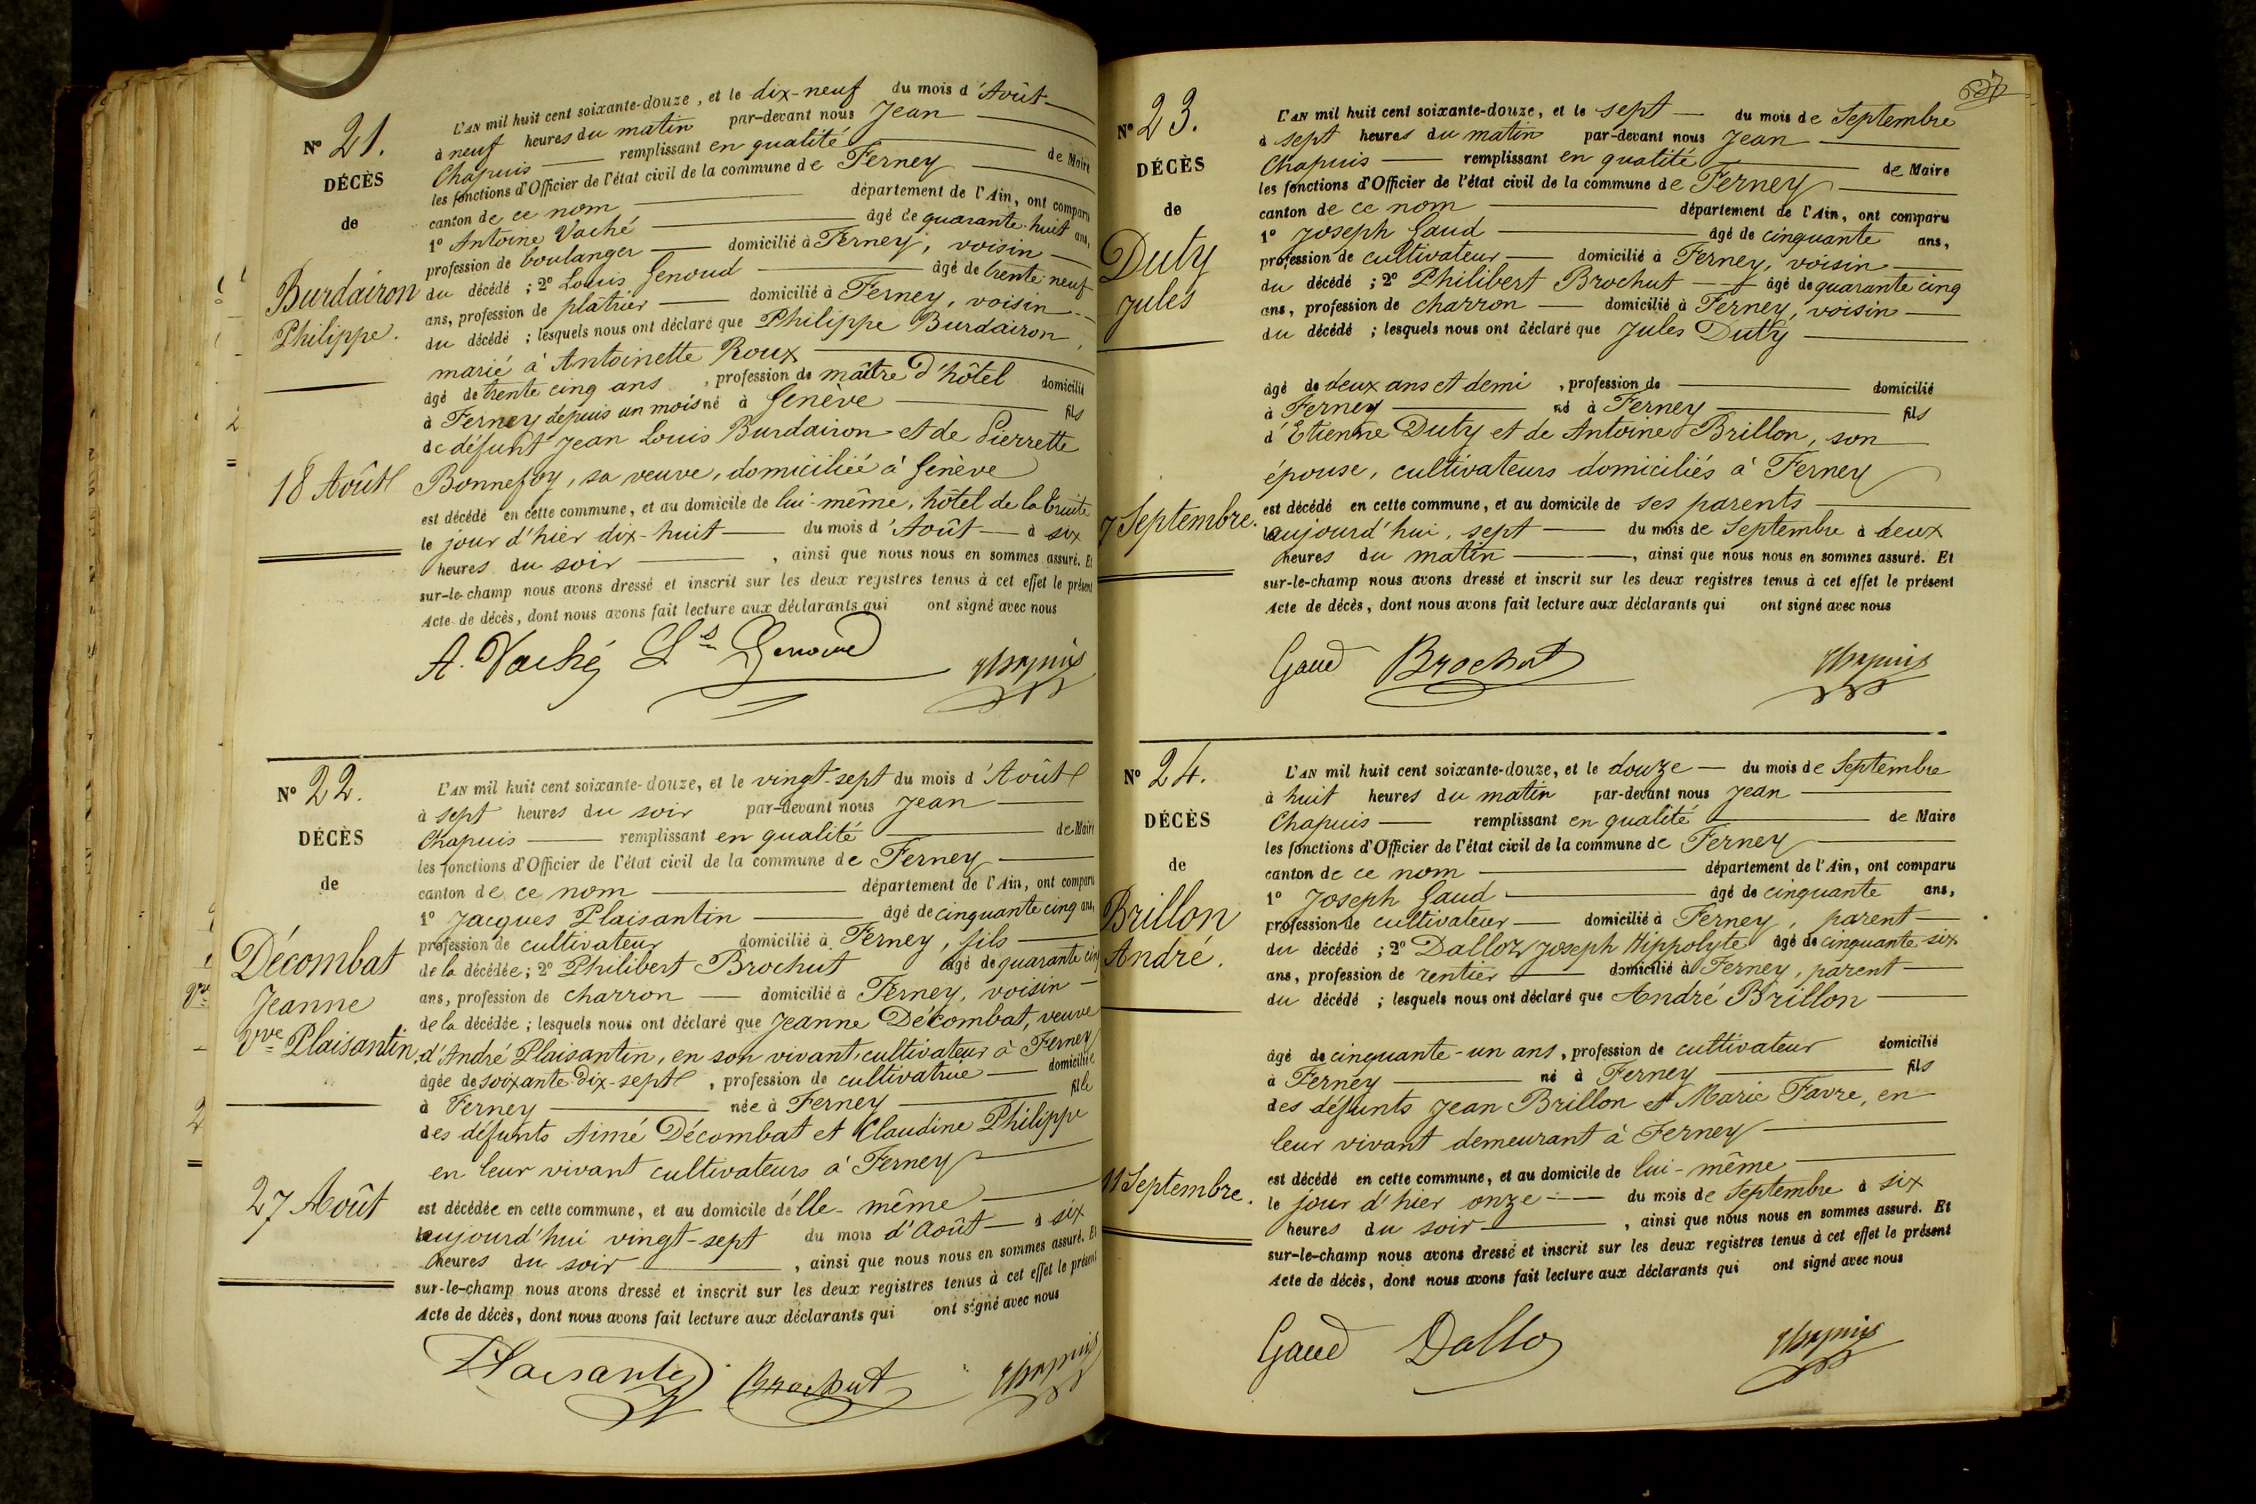 N° 21.
DÉCÈS
de
Burdairon
Philippe.
18 Août
L'AN mil huit cent soixante-douze, et le dix-neuf du mois d'Août
à neuf heures du matin par-devant nous Jean
Chapuis remplissant en qualité de Maire
les fonctions d'Officier de l'état civil de la commune de Ferney
canton de ce nom département de l'Ain, ont comparu
1° Antoine Vaché âgé de quarante-huit ans,
profession de boulanger domicilié à Ferney, voisin
du décédé ; 2° Louis Genoud âgé de trente-neuf
ans, profession de plâtrier domicilié à Ferney, voisin
du décédé ; lesquels nous ont déclaré que Philippe Burdairon,
marié à Antoinette Roux
âgé de trente cinq ans, profession de maître d'hôtel domicilié
à Ferney depuis un mois né à Genève fils
de défunt Jean Louis Burdairon et de Pierrette
Bonnefoy, sa veuve, domiciliée à Genève
est décédé en cette commune, et au domicile de lui-même, hôtel de la Truite
le jour d'hier dix-huit du mois d'Août à six
heures du soir, ainsi que nous nous en sommes assuré. Et
sur-le-champ nous avons dressé et inscrit sur les deux registres tenus à cet effet le présent
Acte de décès, dont nous avons fait lecture aux déclarants qui ont signé avec nous
A. Vaché Ls Genoud Chapuis
N° 22.
DÉCÈS
de
Décombat
Jeanne
Vve Plaisantin.
27 Août
L'AN mil huit cent soixante-douze, et le vingt-sept du mois d'Août
à sept heures du soir par-devant nous Jean
Chapuis remplissant en qualité de Maire
les fonctions d'Officier de l'état civil de la commune de Ferney
canton de ce nom département de l'Ain, ont comparu
1° Jacques Plaisantin âgé de cinquante cinq ans,
profession de cultivateur domicilié à Ferney, fils
de la décédée ; 2° Philibert Brochut âgé de quarante cinq
ans, profession de charron domicilié à Ferney, voisin
de la décédée ; lesquels nous ont déclaré que Jeanne Décombat, veuve
d'André Plaisantin, en son vivant, cultivateur à Ferney
âgée de soixante-dix-sept, profession de cultivatrue domiciliée
à Ferney née à Ferney fille
des défunts Aimé Décombat et Claudine Philippe
en leur vivant cultivateurs à Ferney
est décédée en cette commune, et au domicile d'elle-même
aujourd'hui vingt-sept du mois d'Août à six
heures du soir, ainsi que nous nous en sommes assuré. Et
sur-le-champ nous avons dressé et inscrit sur les deux registres tenus à cet effet le présent
Acte de décès, dont nous avons fait lecture aux déclarants qui ont signé avec nous
Plaisantin Brochut Chapuis
N° 23.
DÉCÈS
de
Duty
Jules
7 Septembre.
L'AN mil huit cent soixante-douze, et le sept du mois de Septembre
à sept heures du matin par-devant nous Jean
Chapuis remplissant en qualité de Maire
les fonctions d'Officier de l'état civil de la commune de Ferney
canton de ce nom département de l'Ain, ont comparu
1° Joseph Gaud âgé de cinquante ans,
profession de cultivateur domicilié à Ferney, voisin
du décédé ; 2° Philibert Brochut âgé de quarante cinq
ans, profession de charron domicilié à Ferney, voisin
du décédé ; lesquels nous ont déclaré que Jules Duty
âgé de deux ans et demi, profession de domicilié
à Ferney né à Ferney fils
d'Etienne Duty et de Antoine Brillon, son
épouse, cultivateurs domiciliés à Ferney
est décédé en cette commune, et au domicile de ses parents
aujourd'hui, sept du mois de Septembre à deux
heures du matin, ainsi que nous nous en sommes assuré. Et
sur-le-champ nous avons dressé et inscrit sur les deux registres tenus à cet effet le présent
Acte de décès, dont nous avons fait lecture aux déclarants qui ont signé avec nous
Gaud Brochut Chapuis
N° 24.
DÉCÈS
de
Brillon
André.
11 Septembre.
L'AN mil huit cent soixante-douze, et le douze du mois de Septembre
à huit heures du matin par-devant nous Jean
Chapuis remplissant en qualité de Maire
les fonctions d'Officier de l'état civil de la commune de Ferney
canton de ce nom département de l'Ain, ont comparu
1° Joseph Gaud âgé de cinquante ans,
profession de cultivateur domicilié à Ferney, parent
du décédé ; 2° Dalloz Joseph Hippolyte âgé de cinquante-six
ans, profession de rentier domicilié à Ferney, parent
du décédé ; lesquels nous ont déclaré que André Brillon
âgé de cinquante-un ans, profession de cultivateur domicilié
à Ferney né à Ferney fils
des défunts Jean Brillon et Marie Favre, en
leur vivant demeurant à Ferney
est décédé en cette commune, et au domicile de lui-même
le jour d'hier onze du mois de Septembre à six
heures du soir, ainsi que nous nous en sommes assuré. Et
sur-le-champ nous avons dressé et inscrit sur les deux registres tenus à cet effet le présent
Acte de décès, dont nous avons fait lecture aux déclarants qui ont signé avec nous
Gaud Dalloz Chapuis